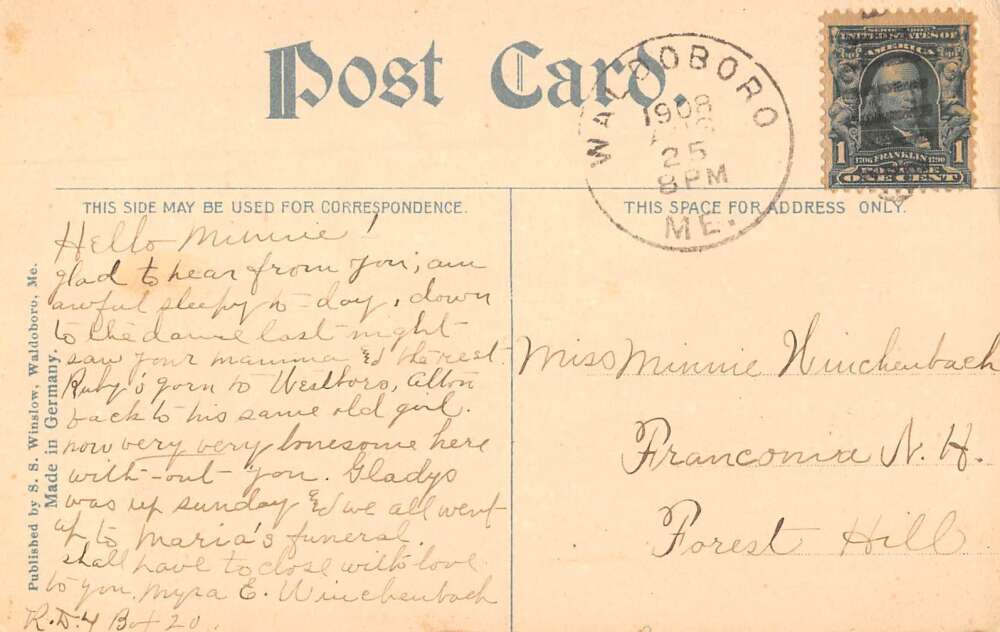 Post Card.
WALDOBORO
1908
AUG
25
8 PM
ME.
SERIES 1902
UNITED STATES OF
AMERICA
1706 FRANKLIN 1790
1 POSTAGE 1
ONE CENT
THIS SIDE MAY BE USED FOR CORRESPONDENCE.
THIS SPACE FOR ADDRESS ONLY.
Published by S. S. Winslow, Waldoboro, Me.
Made in Germany.
Hello Minnie!
glad to hear from you; am
awful sleepy to-day, down
to the dance last night
saw your mamma &d the rest
Ruby's gorn to Westboro, Alton
back to his same old girl.
now very very lonesome here
with-out you. Gladys
was up sunday &d we all went
up to Maria's funeral.
shall have to close with love
to you. Myra E. Winchenbach
R.D.4 Box 20.
Miss Minnie Winchenbach
Franconia N. H.
Forest Hill